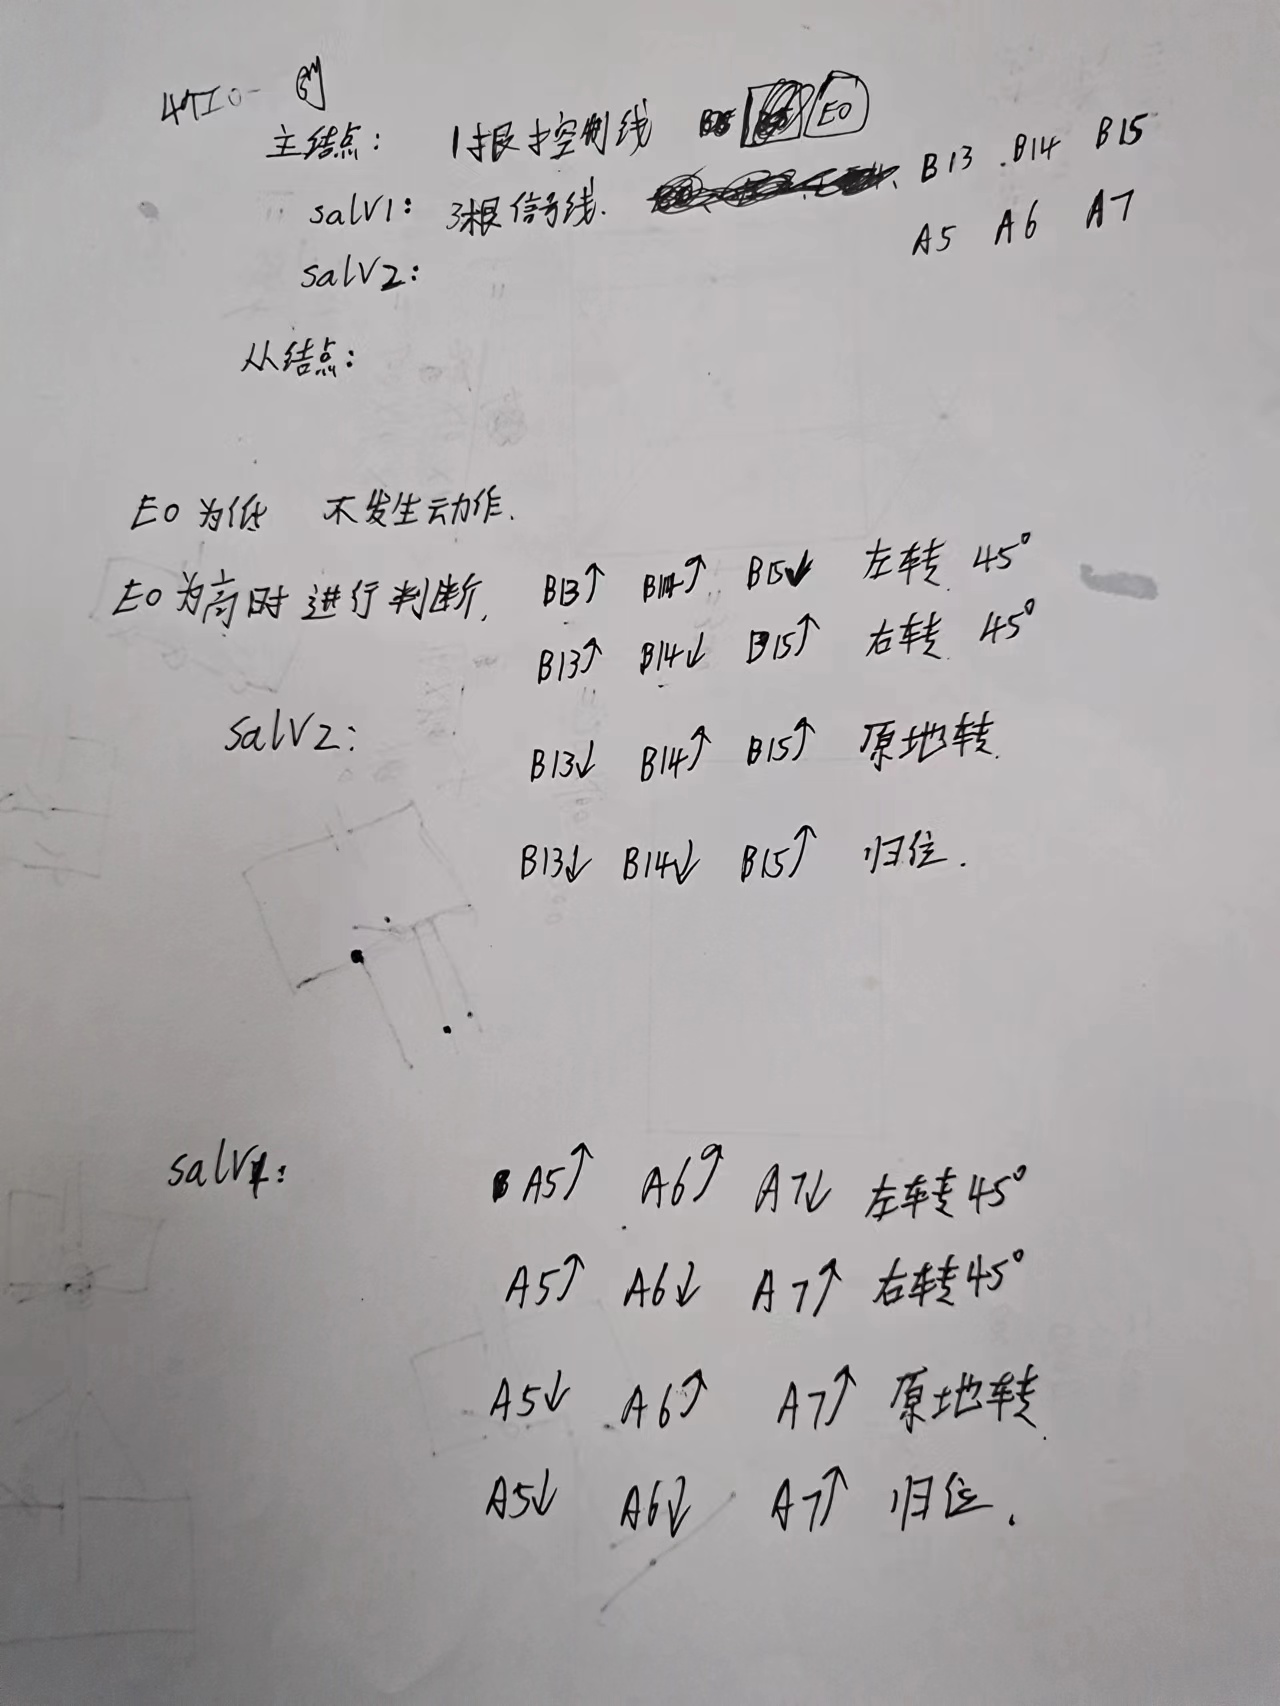 4个IO
主结点: 1根控制线 E0
salv1: 3根信号线. B13 .B14 B15
A5 A6 A7
salv2:
从结点:
E0为低 不发生动作.
E0为高时进行判断. B13↑ B14↑ B15↓ 左转 45°
B13↑ B14↓ B15↑ 右转 45°
salv2:
B13↓ B14↑ B15↑ 原地转.
B13↓ B14↓ B15↑ 归位.
salv1: A5↑ A6↑ A7↓ 左转45°
A5↑ A6↓ A7↑ 右转45°
A5↓ A6↑ A7↑ 原地转.
A5↓ A6↓ A7↑ 归位.